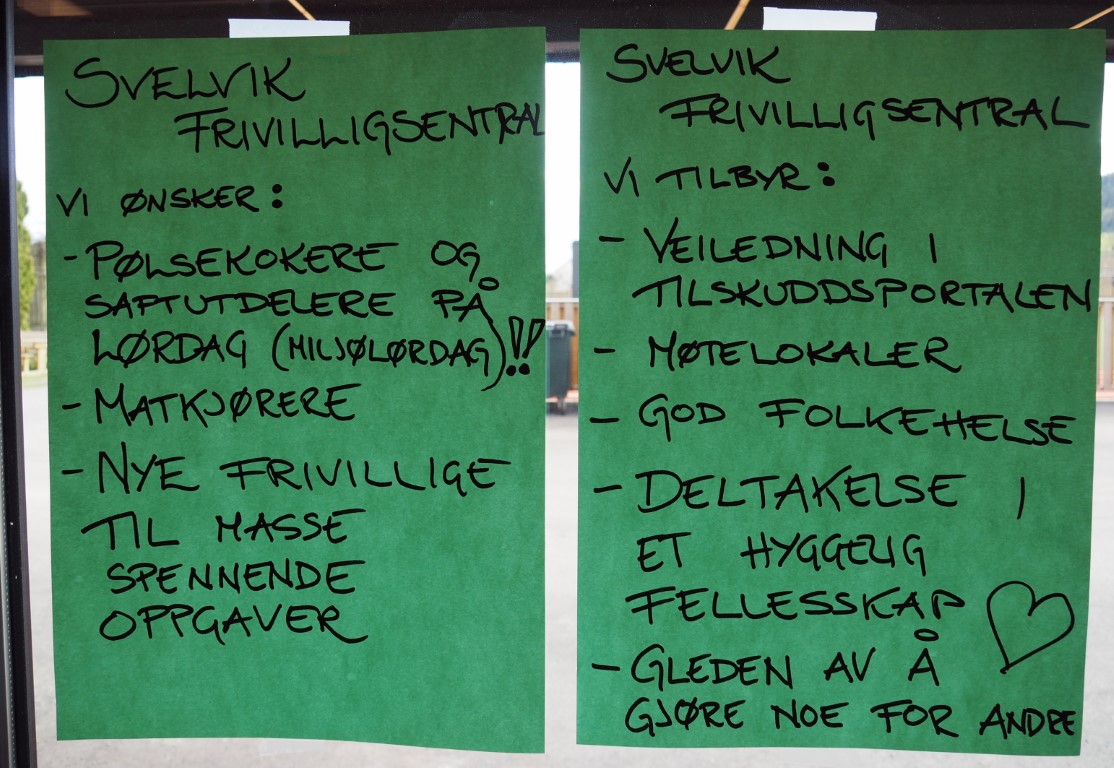 SVELVIK
FRIVILLIGSENTRAL
VI ØNSKER:
- PØLSEKOKERE OG
SAFTUTDELERE PÅ
LØRDAG (MILJØLØRDAG)!!
- MATKJØRERE
- NYE FRIVILLIGE
TIL MASSE
SPENNENDE
OPPGAVER
SVELVIK
FRIVILLIGSENTRAL
VI TILBYR:
- VEILEDNING I
TILSKUDDSPORTALEN
- MØTELOKALER
- GOD FOLKEHELSE
- DELTAKELSE I
ET HYGGELIG
FELLESSKAP
- GLEDEN AV Å
GJØRE NOE FOR ANDRE